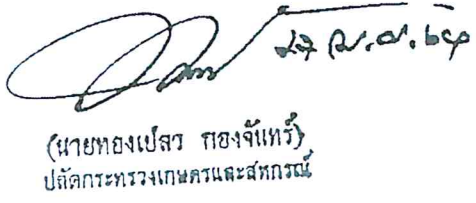 ๒๕ เม.ย. ๖๓
(นายทองเปลว กองจันทร์)
ปลัดกระทรวงเกษตรและสหกรณ์